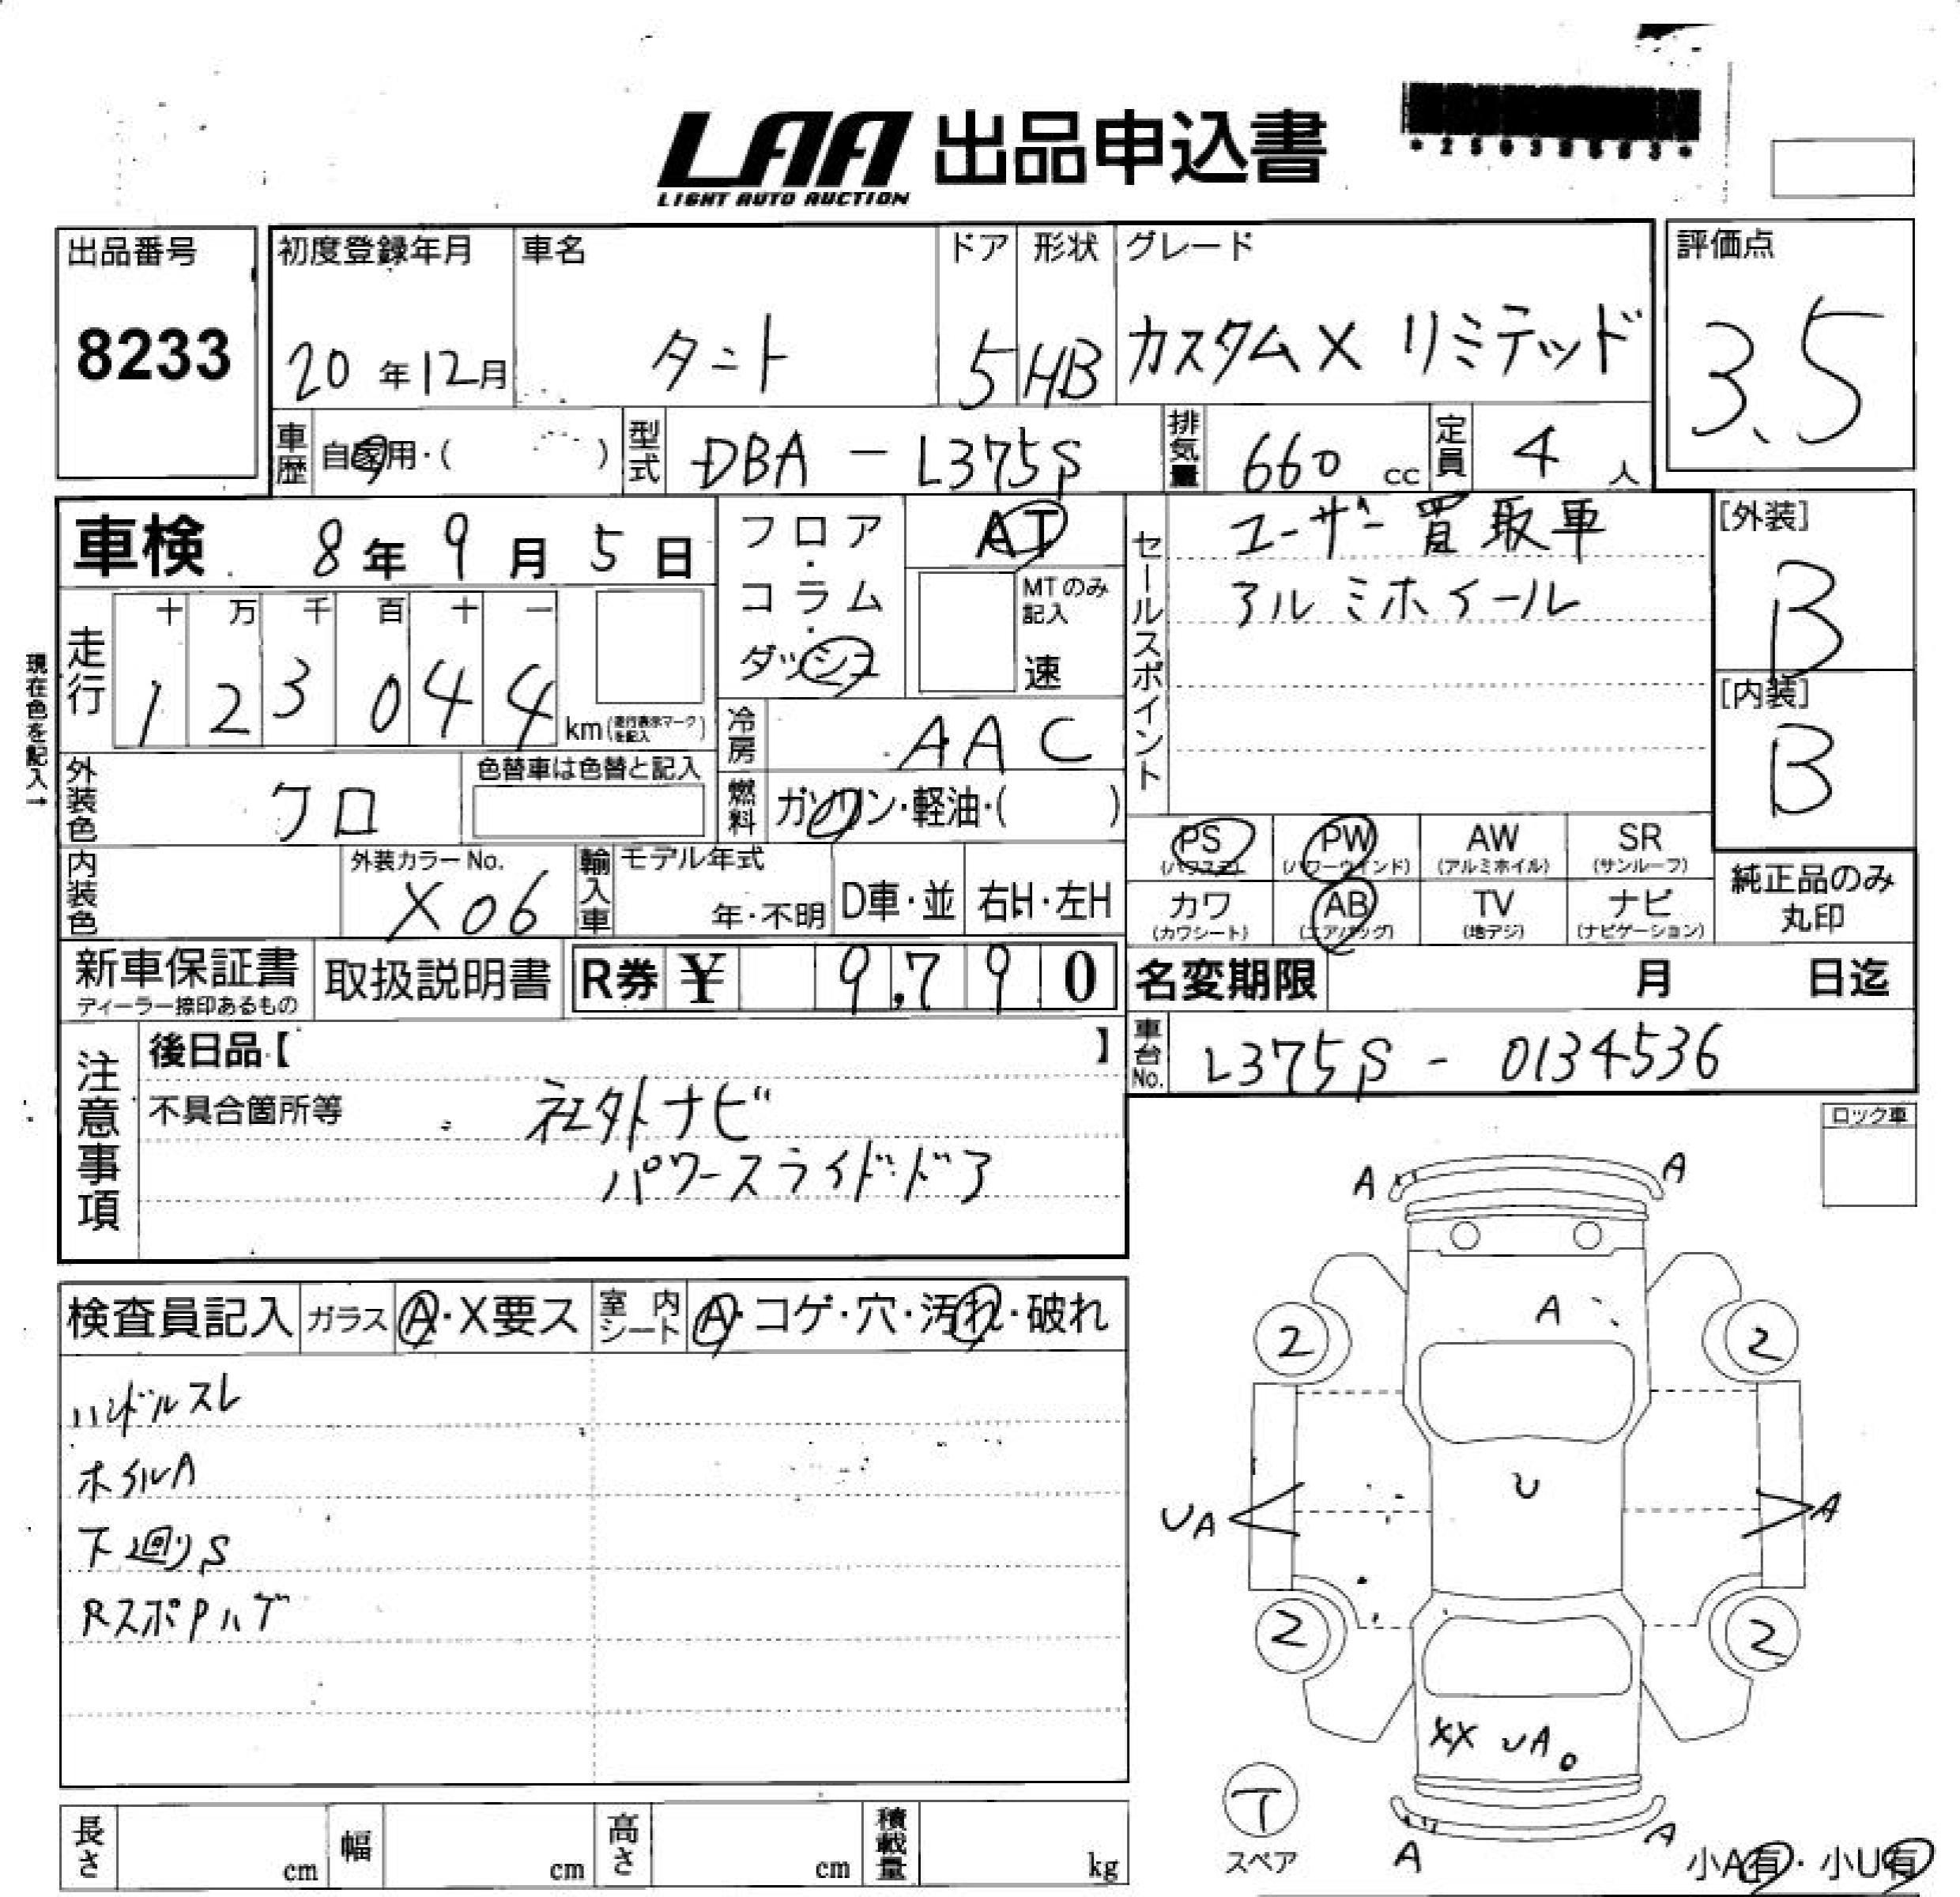 LAA 出品申込書
LIGHT AUTO AUCTION
出品番号
8233
初度登録年月
20年12月
車名
タント
ドア
5
形状
HB
グレード
カスタムX リミテッド
評価点
3.5
車歴
自家用・( )
型式
DBA-L375S
排気量
660 cc
定員
4 人
車検 8年9月5日
フロア・コラム・ダッシュ
AT
MTのみ記入
速
セールスポイント
ユーザー買取車
アルミホイール
[外装]
B
[内装]
B
現在色を記入→
走行
十 万 千 百 十 一
1 2 3 0 4 4 km(走行表示マークを記入)
冷房
AAC
外装色
クロ
色替車は色替と記入
燃料
ガソリン・軽油・( )
PS (パワステ) PW (パワーウインド) AW (アルミホイル) SR (サンルーフ)
カワ (カワシート) AB (エアバッグ) TV (地デジ) ナビ (ナビゲーション)
純正品のみ丸印
内装色
外装カラーNo.
X06
輸入車
モデル年式
年・不明
D車・並
右H・左H
新車保証書
ディーラー捺印あるもの
取扱説明書
R券 ¥ 9,790
名変期限 月 日迄
車台No.
L375S-0134536
注意事項
後日品【 】
不具合箇所等
社外ナビ
パワースライドドア
ロック車
検査員記入 ガラス A・X要ス 室内シート A・コゲ・穴・汚れ・破れ
ハンドルスレ
ホイルA
下廻りS
RスポPハゲ
A A
A
2 2
U
UA A
2 2
XX UA
T
スペア
A A
小A有・小U有
長さ cm 幅 cm 高さ cm 積載量 kg